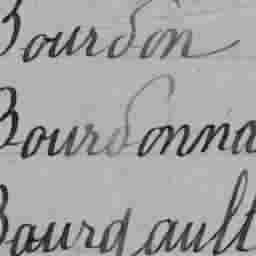 Bourdon
Bourdonna
Bourgault